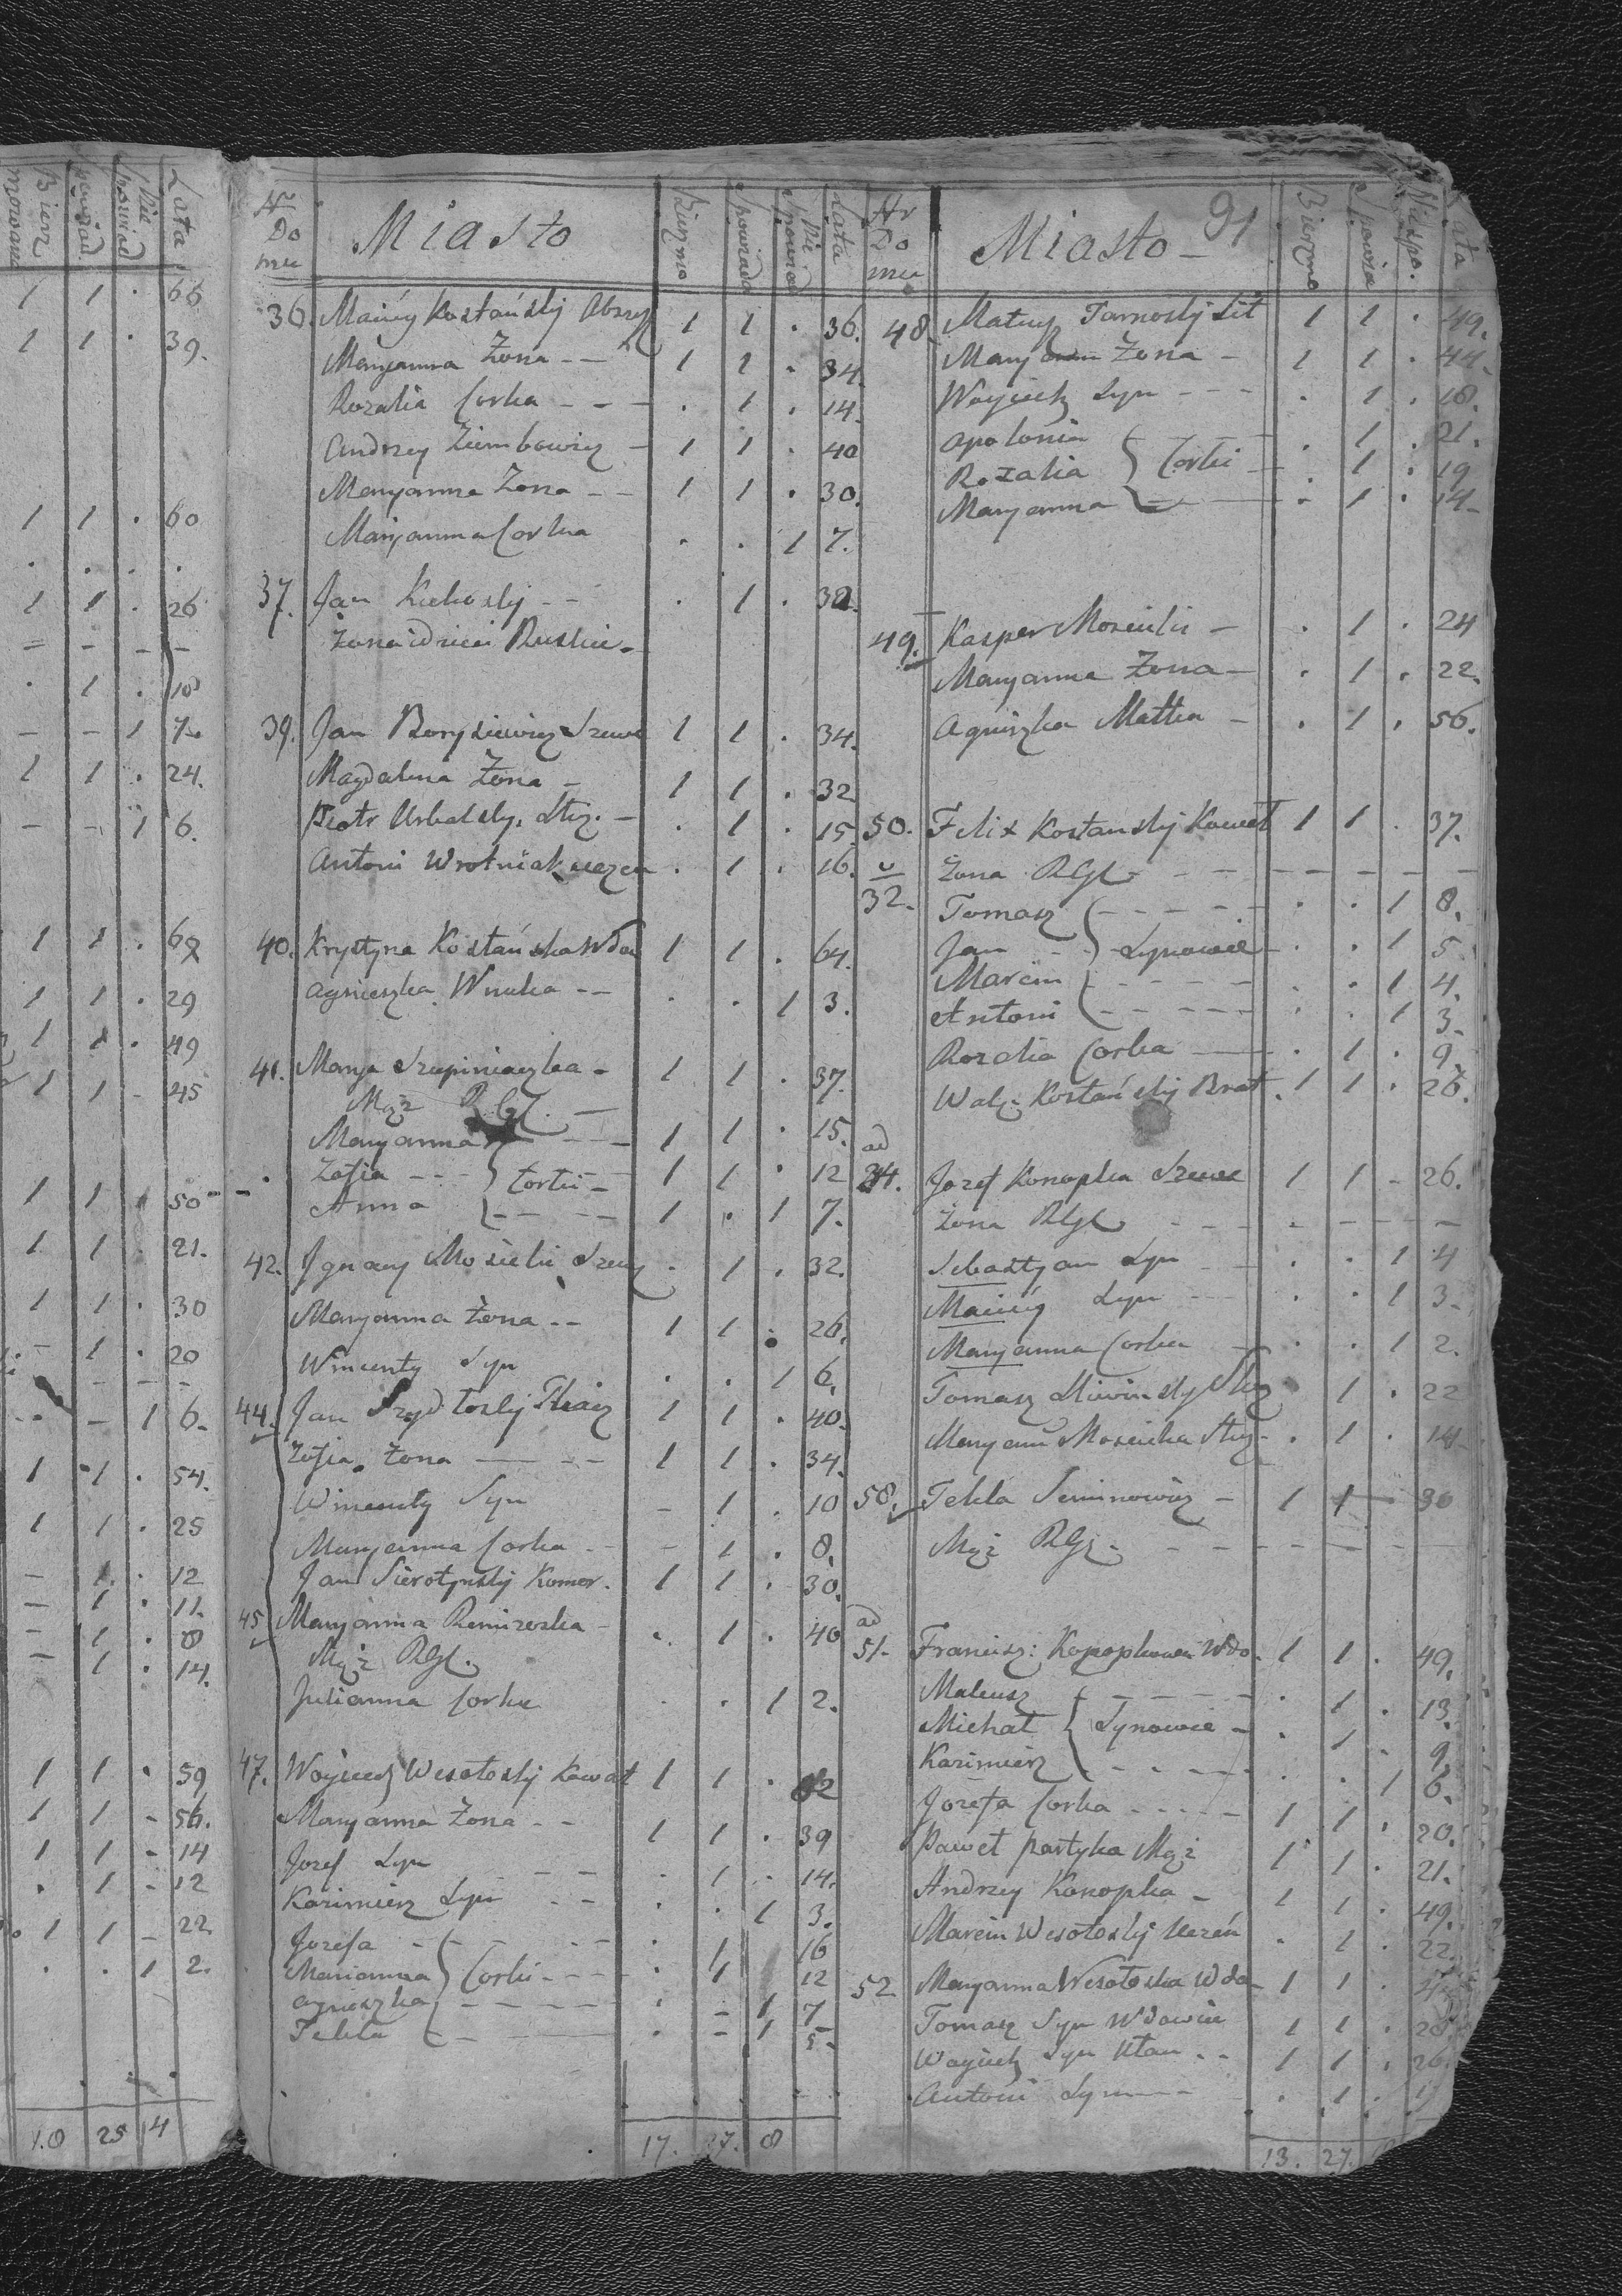 Bierz
mowane
Spowiad.
Nie
spowiad
Lata
1 1 . 66
1 1 . 39.
1 1 . 60
. . . .
1 1 . 26
. 1 . 10
- - 1 7.
1 1 . 24.
- - 1 6.
1 1 . 69
1 1 . 29
1 1 . 49
1 1 - 45
1 1 50
1 1 . 21.
1 1 . 30
- 1 . 20
- - - -
- 1 6.
1 1 . 54.
1 1 . 25
- 1 . 12
- 1 . 11.
- 1 . 8
- 1 . 14.
1 1 . 59
1 1 - 56.
1 1 - 14
. 1 - 12
1 1 - 22
. . 1 2.
10 25 14
Nr
Do
mu
Miasto
Bierzmo
Spowiada
Nie
Spowiad
Lata
36. Maciéy Kostański 1 1 . 36.
Maryanna Żona - - 1 1 . 34.
Rozalia Corka - - - . 1 . 14.
Andrzey Ziembowicz - 1 1 . 40
Maryanna Żona - - 1 1 . 30.
Maryanna Corka . . 1 7.
37. Jan - - . 1 . 32.
Żona i dzieci Ruskie.
39. Jan Borysiewicz Szewc 1 1 . 34.
Magdalena Żona - 1 1 . 32
Piotr Służ. - . 1 . 15
Antoni Wrotniak uczeń . 1 . 16.
40. Krystyna Kostańska Wdo 1 1 . 64.
Agnieszka Wnuka - - . . 1 3.
41. Marya - 1 1 . 37.
Mąż RGł. -
Maryanna - - - 1 1 . 15.
Zofia - - - } Corki - 1 1 . 12
Anna - - - 1 . 1 7.
42. Ignacy Mosicki Szewc . 1 . 32.
Maryanna Żona - - 1 1 . 26.
Wincenty Syn . . 1 6.
44. Jan Tkacz 1 1 . 40.
Zofia Żona - - - 1 1 . 34.
Wincenty Syn - 1 . 10
Maryanna Corka - - - 1 . 8.
Jan Sierotyński Komor. 1 1 . 30.
45. Maryanna - . 1 . 40
Mąż RGł.
Julianna Corka . . 1 2.
47. Woyciech Wesołoski Kowal 1 1 .
Maryanna Żona - - 1 1 . 39
Jozef Syn - - . 1 . 14.
Kazimierz Syn - - . . 1 3.
Jozefa - - - . 1 16
Marianna } Corki - - - . 1 12
Agnieszka - - - . - 1 7
Tekla - - - . - 1 5.
17. 27. 8
Nr
Do
mu
Miasto - 91
Bierzmo
Spowia
Niespo.
Lata
48. Mateusz Tarnoski 1 1 . 49.
Mary Żona - 1 1 . 44.
Woyciech Syn - - - . 1 . 18.
Apolonia - - - . 1 . 21.
Rozalia } Corki - - . 1 . 19
Maryanna - . 1 . 14-
49. Kasper Mosiicki - . 1 . 24
Maryanna Żona - . 1 . 22.
Agniszka Matka - . 1 . 56.
50. Felix Kostanski Kowal 1 1 . 37.
32. Żona RGł - - - - - - -
Tomasz - - - - . . 1 8.
Jan - - } Synowie - . . 1 5
Marcin - - - - . . 1 4.
Antoni - - - - . . 1 3-
Rozalia Corka - . 1 . 9.
Walę: Kostański Brat. 1 1 . 26.
ad
34. Jozef Konopka Szewc 1 1 - 26.
Żona RGł - - - - - - -
Sebastyan Syn - . . 1 4
Maciéy Syn - - . . 1 3-
Maryanna Corka . . 1 2.
Tomasz Służ . 1 . 22
Maryann Mosicka Służ. . 1 . 14-
58. Tekla - 1 1 - 30
Mąż RGł. - - - - - - -
ad
51. Francisz: Konopkowa Wdo. 1 1 . 49.
Mateusz - - - . 1 . 13.
Michał } Synowie - . 1 . 9.
Kazimierz - - - . . 1 6.
Jozefa Corka - - - - 1 1 . 20.
Paweł partyka Mąż 1 1 . 21.
Andrzey Konopka - 1 1 . 49.
Marcin Wesołoski Uczeń . 1 . 22.
52 Maryanna Wesołoska Wdo- 1 1 .
Tomasz Syn Wdowiec 1 1 .
Woyciech Syn Ułan - - 1 1 . 26.
Antoni Syn - - - . 1 .
13. 27.